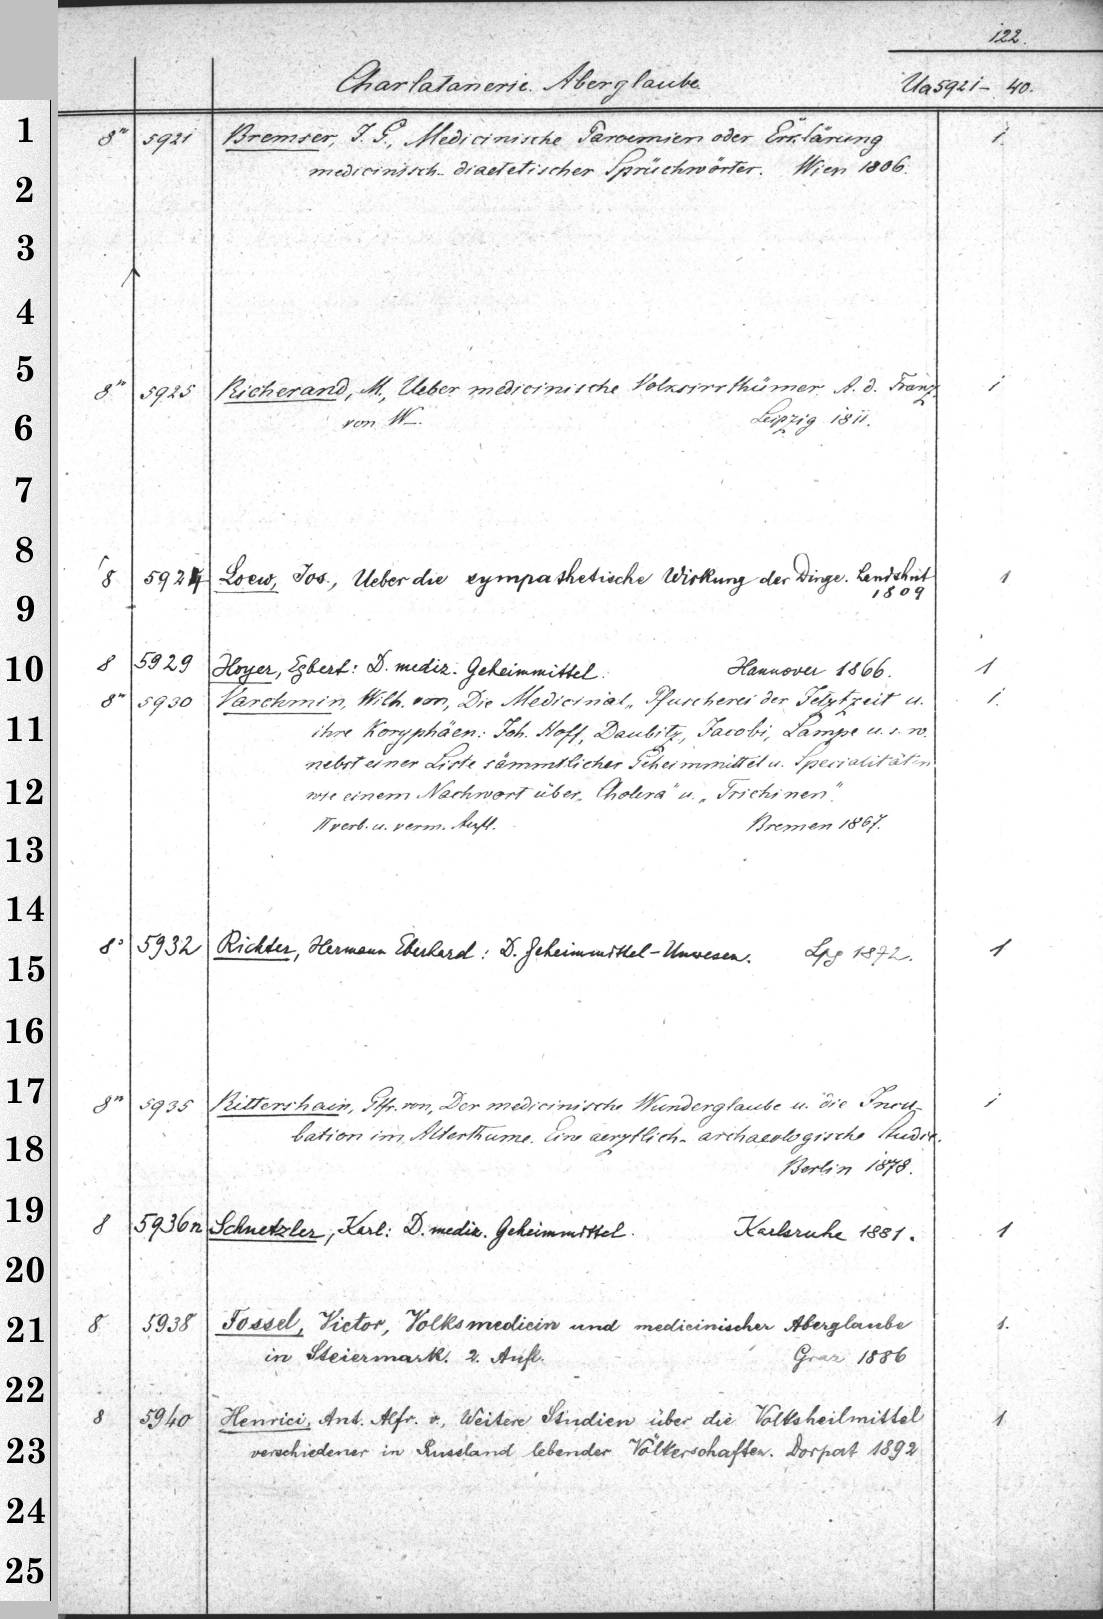 122.
Charlatanerie. Aberglaube
Ua 5921– 40.
1
8° 5921 Bremser, I. G., Medicinische Paroemien oder Erklärung 1.
2
medicinisch-diaetetischer Sprüchwörter. Wien 1806.
3
4
5
8° 5925 Richerand, M., Ueber medicinische Volksirrthümer. A. d. Franz. 1
6
von W—. Leipzig 1811.
7
8
8 5927 Loew, Jos., Ueber die sympathetische Wirkung der Dinge. Landshut 1
1809
9
10
8 5929 Hoyer, Egbert: D. mediz. Geheimmittel. Hannover 1866. 1
8° 5930 Varchmin, Wilh. von, Die Medicinal-Pfuscherei der Jetztzeit u. 1.
11
ihre Koryphäen: Joh. Hoff, Daubitz, Jacobi, Lampe u. s. w.
nebst einer Liste sämmtlicher Geheimmittel u. Specialitäten
12
wie einem Nachwort über „Cholera" u. „Trichinen".
II verb. u. verm. Aufl. Bremen 1867.
13
14
8° 5932 Richter, Hermann Eberhard: D. Geheimmittel-Unwesen. Lpg 1872. 1
15
16
17
8° 5935 Rittershain, Gtfr. von, Der medicinische Wunderglaube u. die Incu- 1
18
bation im Alterthume. Eine aerztlich-archaeologische Studie.
Berlin 1878.
19
8 5936n Schnetzler, Karl: D. mediz. Geheimmittel. Karlsruhe 1881. 1
20
21
8 5938 Fossel, Victor, Volksmedicin und medicinischer Aberglaube 1.
in Steiermark. 2. Aufl. Graz 1886
22
8 5940 Henrici, Ant. Alfr. v., Weitere Studien über die Volksheilmittel 1
23
verschiedener in Russland lebender Völkerschaften. Dorpat 1892
24
25